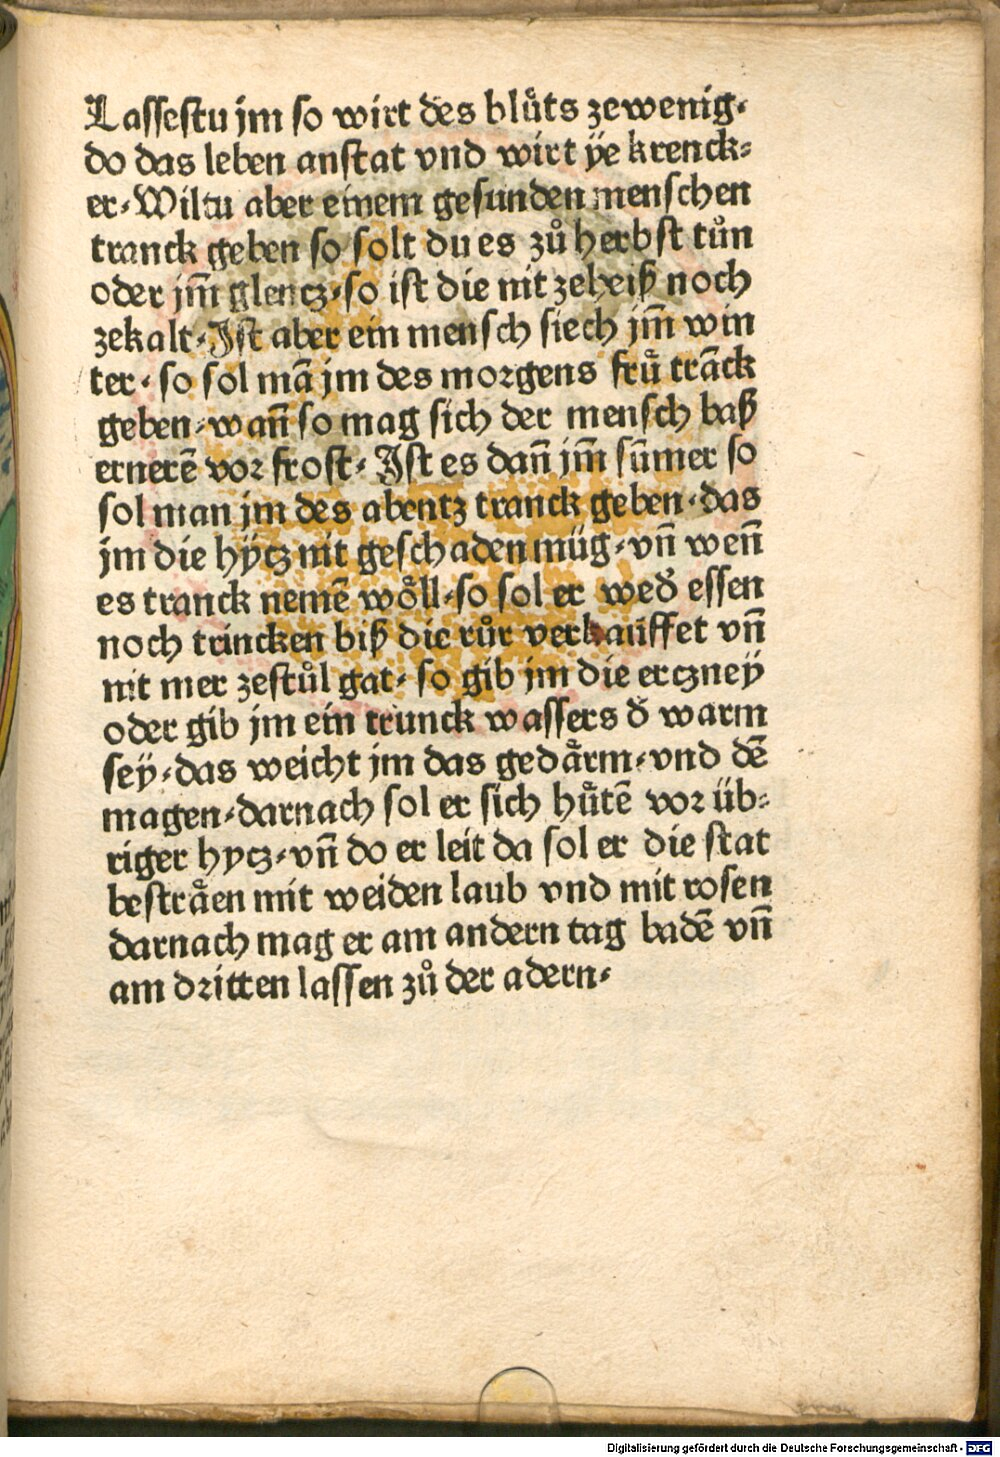 Lassestu jm so wirt des blůts zewenig·
do das leben anstat vnd wirt ÿe krenck⸗
er· Wiltu aber einem gesunden menschen
tranck geben so solt du es zů herbst tůn
oder jm̄ glentz· so ist die nit zeheiß noch
zekalt· Jst aber ein mensch siech jm̄ win
ter· so sol mā jm des morgens frů trāck
geben· wañ so mag sich der mensch baß
ernerē vor frost· Jst es dañ jm̄ sūmer so
sol man jm des abentz tranck geben· das
jm die hÿtz nit geschaden müg· vñ weñ
es tranck nemē wöll· so sol er wed̄ essen
noch trincken biß die růr verkauffet vñ
nit mer zestůl gat· so gib jm die ertzneÿ
oder gib jm ein trunck wassers d̄ warm
seÿ· das weicht jm das gedärm· vnd dē
magen· darnach sol er sich hůtē vor üb⸗
riger hytz· vñ do er leit da sol er die stat
besträen mit weiden laub vnd mit rosen
darnach mag er am andern tag badē vñ
am dritten lassen zů der adern·
Digitalisierung gefördert durch die Deutsche Forschungsgemeinschaft - DFG